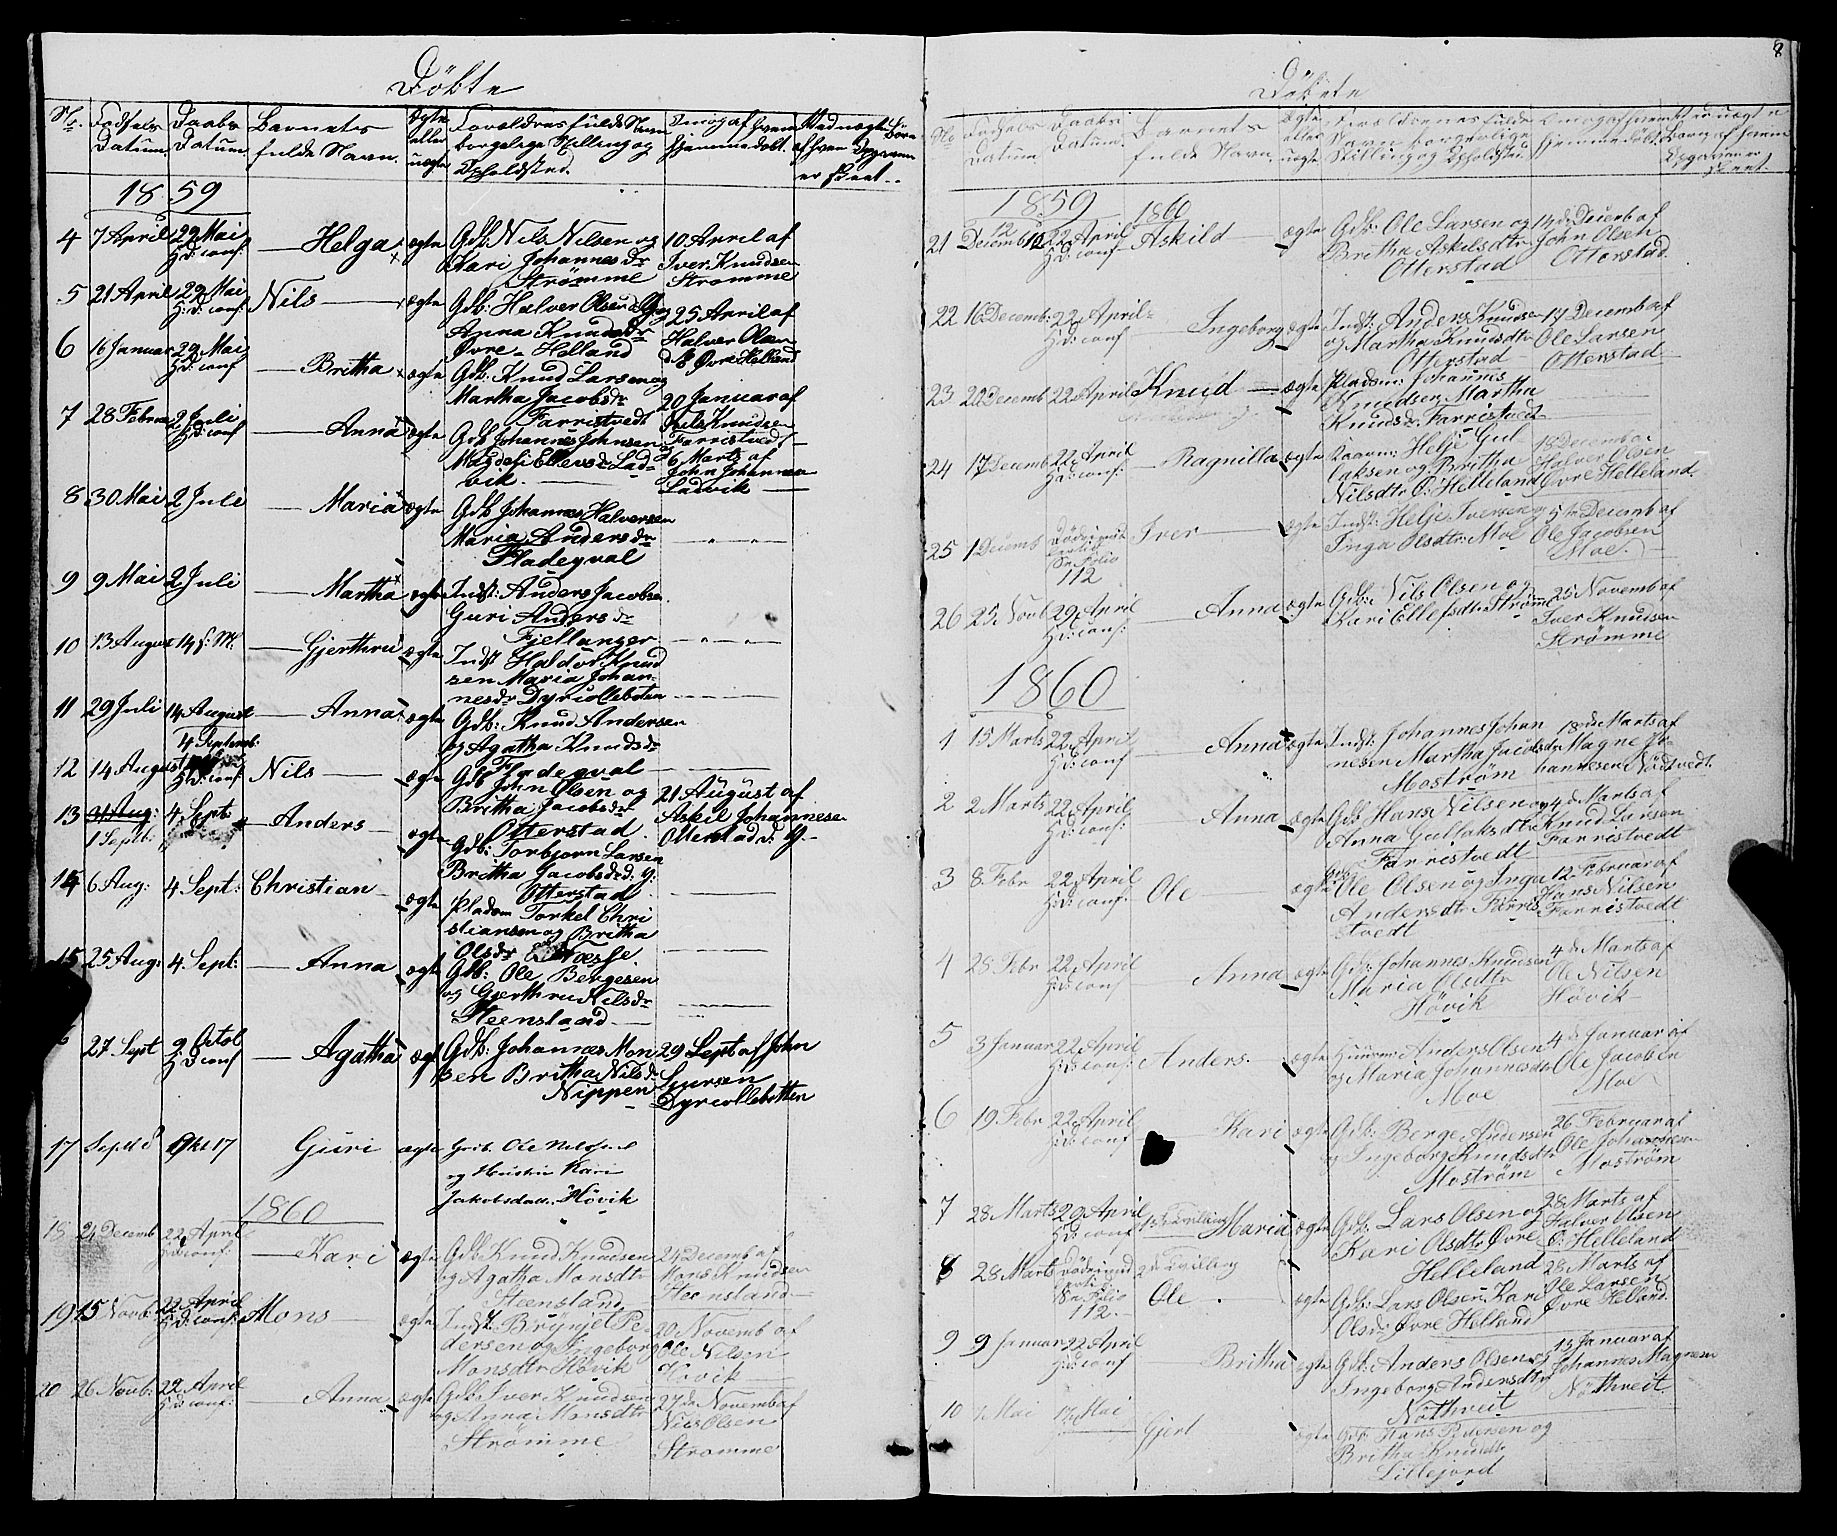 Döbte
No. Födsels Datum. Daabs Datum. Barnets fulde Navn. Ægte eller uægte Forældres fulde Navn borgelige Stilling og Opholdsted. Om og af hvem hjemmedøbt. Ved uægte Børn af hvem Opgaven er skeet.
1859
4 7 April 29 Mai H:d:conf: Helga ægte Gdb: Nils Nilsen og Kari Johannesdr Strømme 10 April af Iver Knudsen Strømme
5 21 April 29 Mai H:d:conf: Nils ægte Gdb: Halver Olsen og Anna Knudsdr Øvre Helland 25 April af Halver Olsen Øvre Helland
6 16 Januar 29 Mai H:d:conf Britha ægte Gdb: Knud Larsen og Martha Jacobsdr Farristvedt 20 Januar af Nils Knudsen Farristvedt
7 28 Februar 2 Juli H:d:conf Anna ægte Gdb Johannes Johnsen Magdeli Ellensdr Ladvik 6 Marts af John Johannesen Ladvik
8 30 Mai 2 Juli Maria ægte Gdb Johannes Halversen Maria Andersdr Fladeqval
9 9 Mai 2 Juli Martha ægte Indst: Anders Jacobsen Guri Andersdr Fjellanger
10 13 August 14 s: M. Gjerthru ægte Indst Haldor Knudsen Maria Johannesdr Dyricolleboten
11 29 Juli 14 August Anna ægte Gdb: Knud Andersen og Agatha Knudsdr Fladeqval
12 14 August 4 Septemb: H:d:conf Nils ægte Gdb John Olsen og Britha Jacobsdr Otterstad 21 August af Askil Johannesen Otterstad d. y.
13 31 Aug: 1 Sept: 4 Sept: Anders ægte Gdb: Torbjorn Larsen Britha Jacobsdr d. y. Otterstad
14 6 Aug: 4 Sept: Christian ægte Pladsm Torkel Christiansen og Britha Olsdr Næsse.
15 25 Aug: 4 Sept: Anna ægte Gdb: Ole Bergesen og Gjerthru Nilsdr Steensland
27 Sept 9 Octob H:d:conf Agatha ægt Gdb: Johannes Monsen Britha Nilsdr Nippen 29 Sept af John Dyricollebotten
17 Sept 8 Okt 17 Guri ægte Grdb. Ole Nilssen og Hustru Kari Jakobsdatt. Høvik
1860
18 24 Decemb 22 April H:d:conf: Kari ægte Gdb: Knud Knudsen og Agatha Monsdtr Steensland 24 Decemb af Mons Knudsen Steensland
19 15 Novb: 22 April H:d:conf: Mons ægte Indst: Brynjel Pedersen og Ingeborg Monsdtr Høvik 20 Novemb af Ole Nilsen Høvik
20 26 Novb: 22 April H:d:conf: Anna ægte Gdb: Iver Knudsen og Anna Monsdtr Strømme 27de Novemb af Nils Olsen Strømme
8
Döbte
No Fødsels Datum Daabs Datum. Barnets fulde Navn. Ægte eller uægte Forældrenes fulde Navn borgerlige Stilling og Opholdsted. Om og af hvem hjemmedøbt. Ved uægte Børn af hvem Opgaven er skeet.
1859 1860
21 12 Decemb 22 April H:d:conf Askild ægte Gdb: Ole Larsen og Britha Askelsdtr Otterstad 14de Decemb af John Olsen Otterstad
22 16 Decemb: 22 April H:d:conf Ingeborg ægte Indst: Anders Knudsen og Martha Knudsdtr Otterstad 17 Decemb af Ole Larsen Otterstad
23 22 Decemb 22 April Knud ægte Pladsm: Johannes Knudsen Martha Knudsdr Farristvedt
24 17 Decemb 22 April H:d:conf: Ragnilla ægte Helje Gullaksen og Britha Nilsdtr Ø: Helleland 18 Decemb af Halver Olsen Øvre Helleland.
25 1 Decemb Død Se Folio 112 Iver ægte Indst: Helje Iversen og Inga Olsdtr: Moe 5te Decemb af Ole Jacobsen Moe.
26 25 Novb 29 April H:d:conf: Anna ægte Gdb: Nils Olsen og Kari Ellefsdtr Strømme 25 Novemb af Iver Knudsen Strømme
1860
1 15 Marts 22 April H:d:conf Anna ægte Indst: Johannes Johannesen Martha Jacobsdtr Mostrøm 18de Marts af Magne Johannesen Nödtvedt.
2 2 Marts 22 April H:d:conf: Anna ægte Gdb Hans Nilsen og Anna Gullaksdtr Farristvedt 4de Marts af Knud Larsen Farristvedt
3 8 Febr 22 April H:d:conf: Ole ægte Gdb: Ole Olsen og Inga Andersdtr Farristvedt 12 Februar af Hans Nilsen Farristvedt
4 28 Febr 22 April H:d:conf Anna ægte Gdb: Johannes Knudsen Maria Olsdtr Høvik 4de Marts af Ole Nilsen Høvik
5 3 Januar 22 April H:d:conf: Anders. ægte Huusm: Anders Olsen og Maria Johannesdtr Moe 4de Januar af Ole Jacobsen Moe
6 19 Febr 22 April H:d:conf Kari ægte Gdb: Berge Andersen og Ingeborg Knudsdtr Mostrøm 26 Februar af Ole Johannesen Mostrøm
7 28 Marts 29 April H:d:conf 1ste Tvilling Maria ægte Gdb: Lars Olsen og Kari Olsdtr Øvre Helleland 28 Marts af Halver Olsen Ø: Helleland
8 28 Marts Død Se Folio 112. 2de Tvilling Ole ægte Gdb: Lars Olsen Kari Olsdr Øvre Helland 28 Marts af Ole Larsen Øvre Helland.
9 9 Januar 22 April H:d:conf Britha ægte Gdb: Anders Olsen og Ingeborg Andersdtr Nöthveit 13 Januar af Johannes Magnesen Nöthveit
10 1 Mai 17 Mai Gjert ægte Gdb: Hans Pedersen og Britha Knudsdtr Lillejord